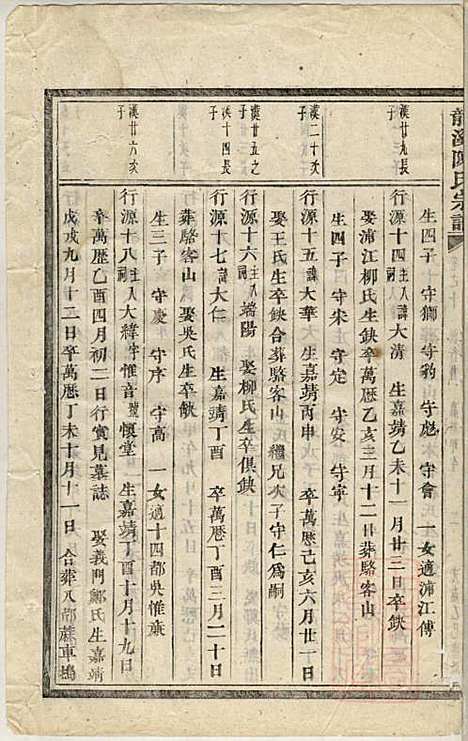 龍溪陳氏宗譜
生四子 守獅 守豹 守彪 守會 一女適浦江傅
漢廿九長子
行源十四主人祠諱大清 生嘉靖乙未十一月廿三日卒缺
娶浦江柳氏生缺卒萬歷乙亥三月十二日葬駱客山
生四子 守宋 守定 守安 守寧
漢二十次子
行源十五諱大華 生嘉靖丙申 卒萬歷己亥六月廿一日
娶王氏生卒缺合葬駱客山 繼兄次子守仁為嗣
漢廿五之子
行源十六主人祠諱端陽 娶柳氏生卒俱缺
漢十四長子
行源十七諱大仁 生嘉靖丁酉 卒萬歷丁酉三月二十日
葬駱客山 娶吳氏生卒缺
生三子 守慶 守序 守高 一女適十四都吳惟
漢廿六次子
行源十八主人祠大緯字惟音號懷堂 生嘉靖丁酉十月十九日
卒萬歷乙酉四月初二日行實見墓誌 娶義門鄭氏生嘉靖
戊戌九月十二日卒萬歷丁未十月十一日 合葬八都東塢